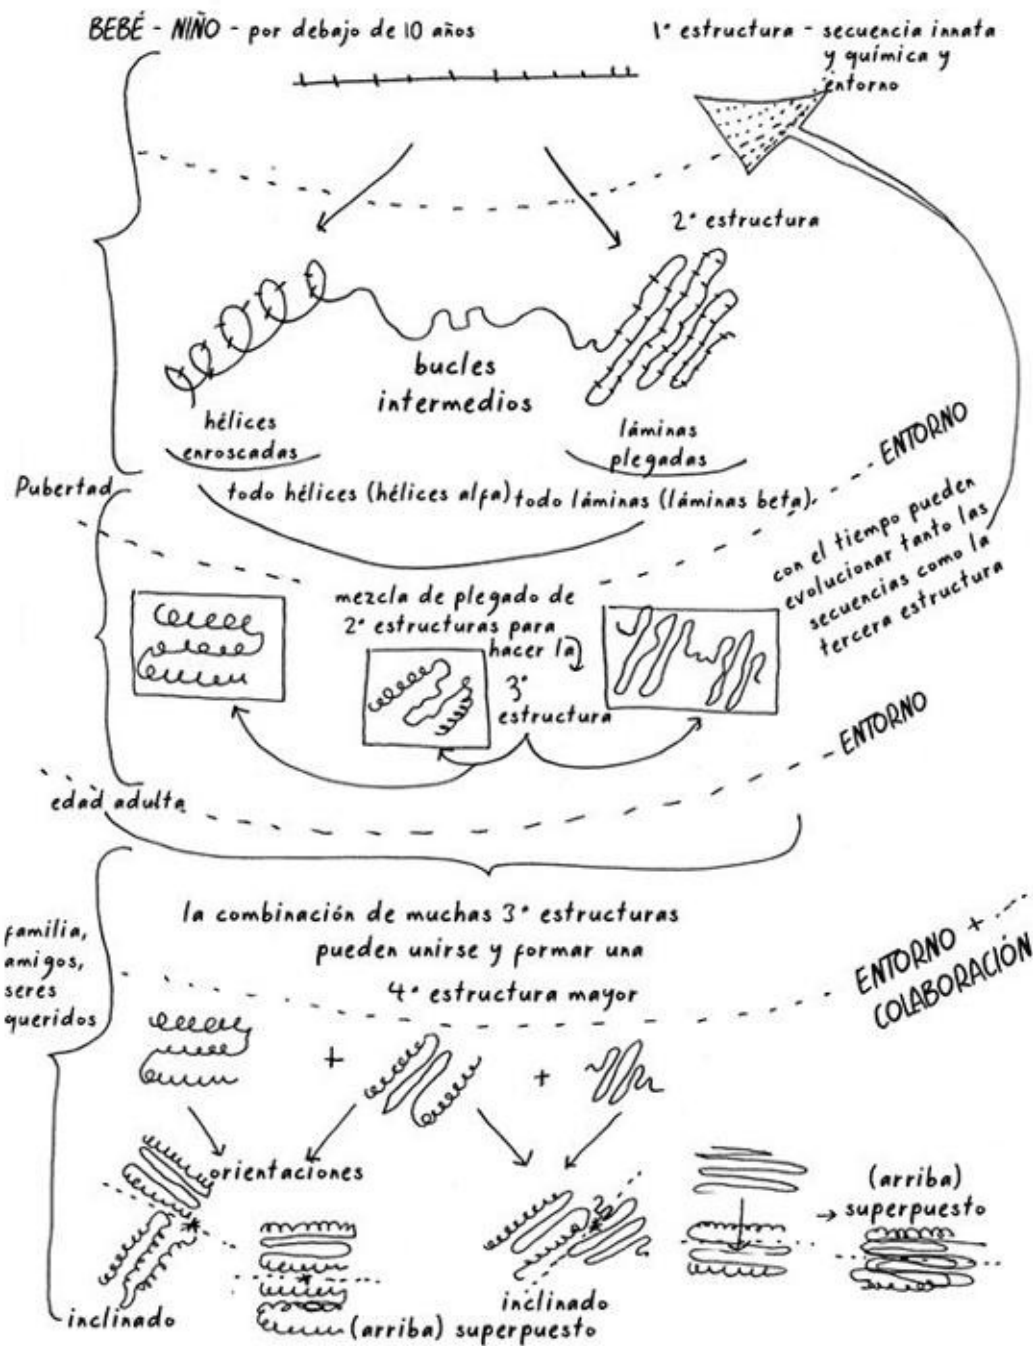 BEBÉ - NIÑO - por debajo de 10 años
1ª estructura - secuencia innata
y química y
entorno
2ª estructura
bucles
intermedios
hélices
enroscadas
láminas
plegadas
ENTORNO
Pubertad
todo hélices (hélices alfa)
todo láminas (láminas beta).
con el tiempo pueden
evolucionar tanto las
secuencias como la
tercera estructura
mezcla de plegado de
2ª estructuras para
hacer la
3ª
estructura
ENTORNO
edad adulta
familia,
amigos,
seres
queridos
la combinación de muchas 3ª estructuras
pueden unirse y formar una
4ª estructura mayor
ENTORNO +
COLABORACIÓN
+
+
orientaciones
(arriba)
superpuesto
inclinado
inclinado
(arriba) superpuesto